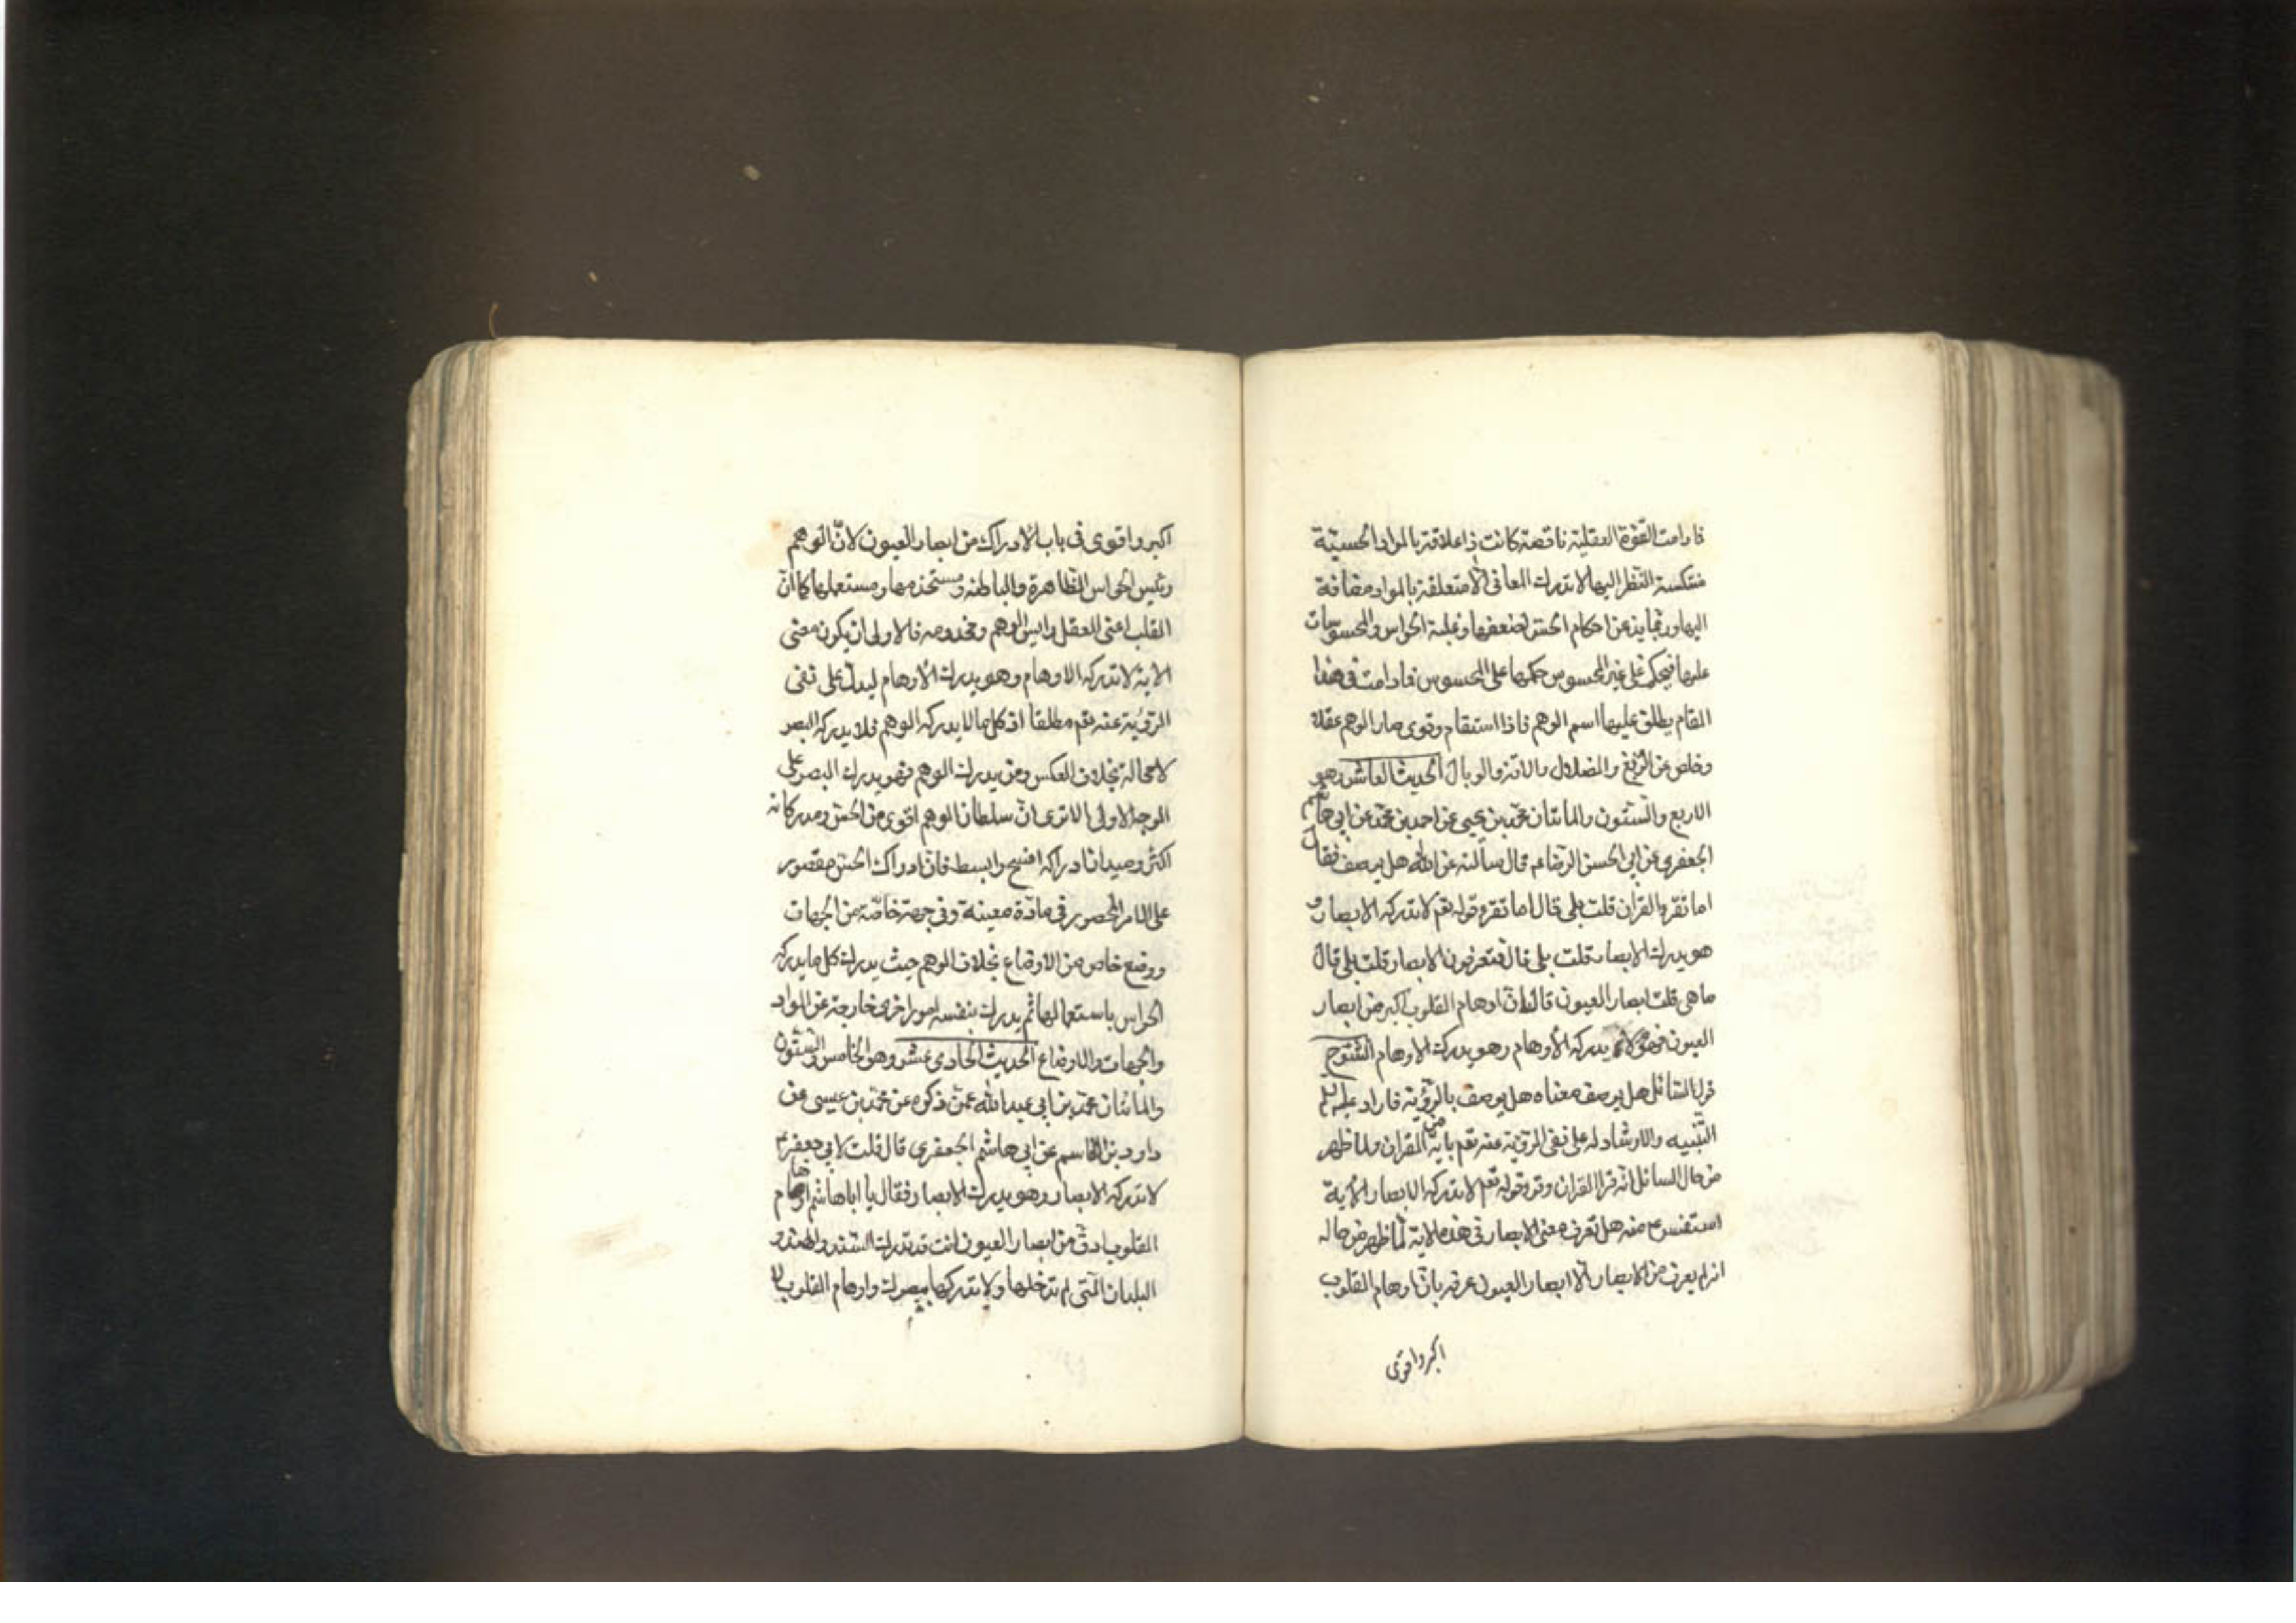 فما دامت القوة العقلية ناقصة كانت ذا علاقة بالمواد الحسية
منتكسة النظر اليها لا تدرك المعانى الا متعلقة بالمواد مضافة
اليها وربما يذعن احكام الحس لضعفها وغلبة الحواس والمحسوسات
عليها فيحكم على غير المحسوس حكمها على المحسوس فما دامت فى هذا
المقام يطلق عليها اسم الوهم فاذا استقام وقوى صار الوهم عقلا
وخلص عن الزيغ والضلال والافة والوبال الحديث العاشر وهو
الاربع والستون والمائتان محمد بن يحيى عن احمد بن محمد عن ابى هاشم
الجعفرى عن ابى الحسن الرضا ع قال سألته عن الله هل يوصف فقال
اما تقرء القران قلت بلى قال اما تقرء قوله تعم لا تدركه الابصار و
هو يدرك الابصار قلت بلى قال فتعرفون الابصار قلت بلى قال
ما هى قلت ابصار العيون قال ان اوهام القلوب اكبر من ابصار
العيون فهو لا يدركه الأوهام وهو يدرك الاوهام الشروح
قول السائل هل يوصف معناه هل يوصف بالرؤية فاراد عليه
التنبيه والارشاد له على نفى الرؤية عنه تعم باية من القران ولما ظهر
من حال السائل انه قرا القران وقرء قوله تعم لا تدركه الابصار الاية
استفسر ع منه هل تعرف معنى الابصار فى هذه الاية لما ظهر من حاله
انه لم يعرف من الابصار الا ابصار العيون عرفه بان اوهام القلوب
اكبر واقوى
اكبر واقوى فى باب الادراك من ابصار العيون لان الوهم
رئيس الحواس الظاهرة والباطنة ومستخدمها ومستعملها كما ان
القلب اعنى العقل رايس الوهم ومخدومه فالاولى ان يكون معنى
الاية لا تدركه الاوهام وهو يدرك الاوهام ليدل على نفى
الرؤية عنه تعم مطلقا اذ كل ما لا يدركه الوهم فلا يدركه البصر
لا محالة بخلاف العكس ومن يدرك الوهم فهو يدرك البصر على
الوجه الاولى الا ترى ان سلطان الوهم اقوى من الحس ومدركاته
اكثر وميدان ادراكه افسح وابسط فان ادراك الحس مقصور
على الامر المحصور فى مادة معينة وفى جهة خاصة من الجهات
ووضع خاص من الاوضاع بخلاف الوهم حيث يدرك كل ما يدركه
الحواس باستعمالها ثم يدرك بنفسه امورا اخرى خارجة عن المواد
والجهات والاوضاع الحديث الحادى عشر وهو الخامس والستون
والمائتان محمد بن ابى عبد الله عمن ذكره عن محمد بن عيسى عن
داود بن القاسم عن ابى هاشم الجعفرى قال قلت لابى جعفر ع
لا تدركه الابصار وهو يدرك الابصار فقال يا ابا هاشم اوهام
القلوب ادق من ابصار العيون انت قد تدرك السند والهند و
البلدان التى لم تدخلها ولا تدركها ببصرك واوهام القلوب لا